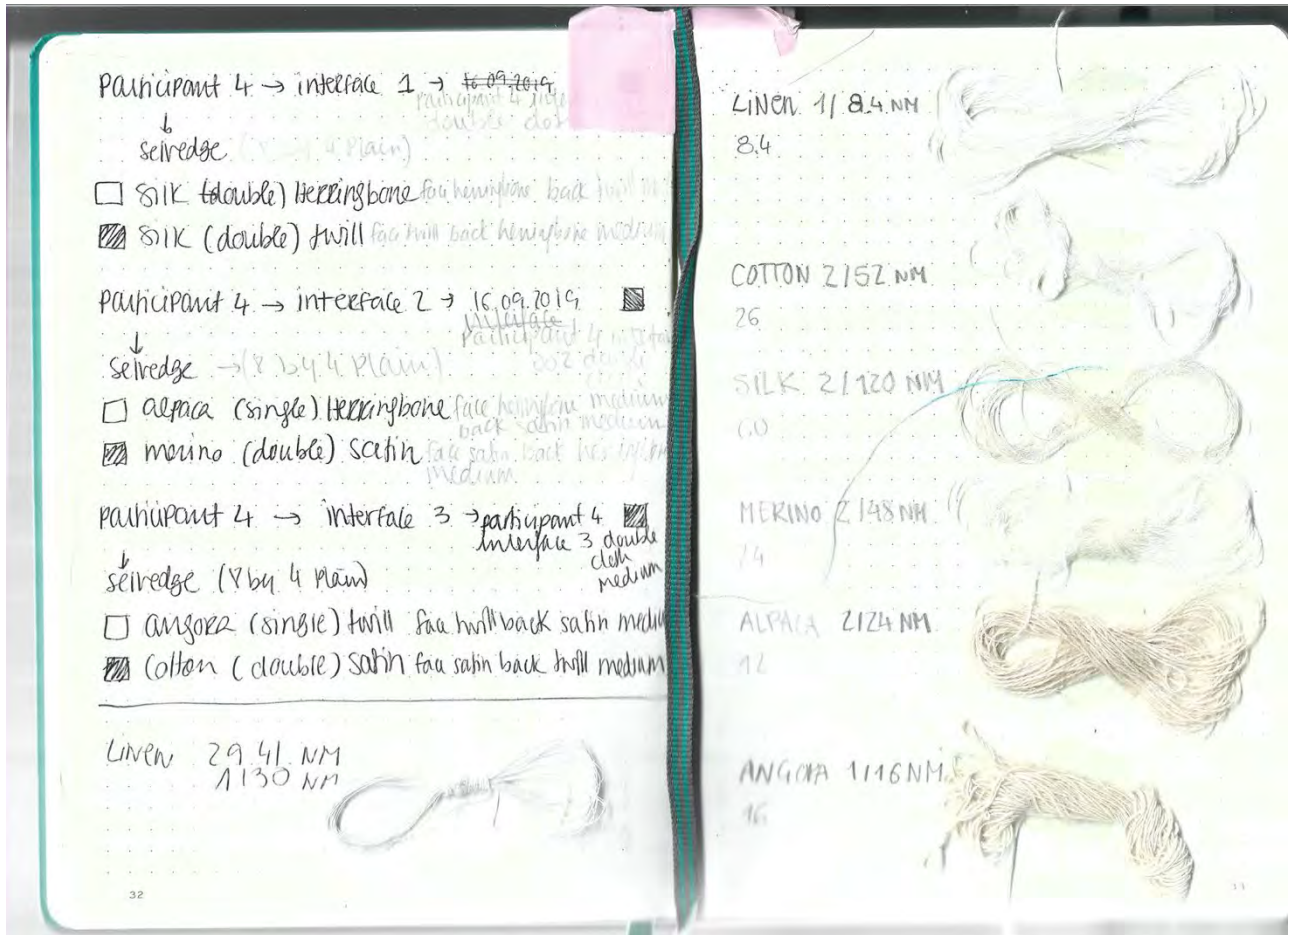 Participant 4 → interface 1 → 16.09.2019
participant 4
double
↓
selvedge (8 by 4 Plain)
silk (double) Herringbone face herringbone back twill
silk (double) twill face twill back herringbone medium
Participant 4 → interface 2 → 16.09.2019
interface
Participant 4
↓
selvedge → (8 by 4 Plain)
alpaca (single) Herringbone face herringbone medium
back satin medium
merino (double) satin face satin back
medium
participant 4 → interface 3 → participant 4
interface 3 double
cloth
medium
↓
selvedge (8 by 4 Plain)
angora (single) twill face twill back satin mediu
Cotton (double) satin face satin back twill medium
Linen 29.41 NM
1/30 NM
32
LiNen 1/8.4 NM
8.4
COTTON 2/52 NM
26
SILK 2/120 NM
60
MERINO 2/48 NM
24
ALPACA 2/24 NM
12
ANGORA 1/16 NM
16